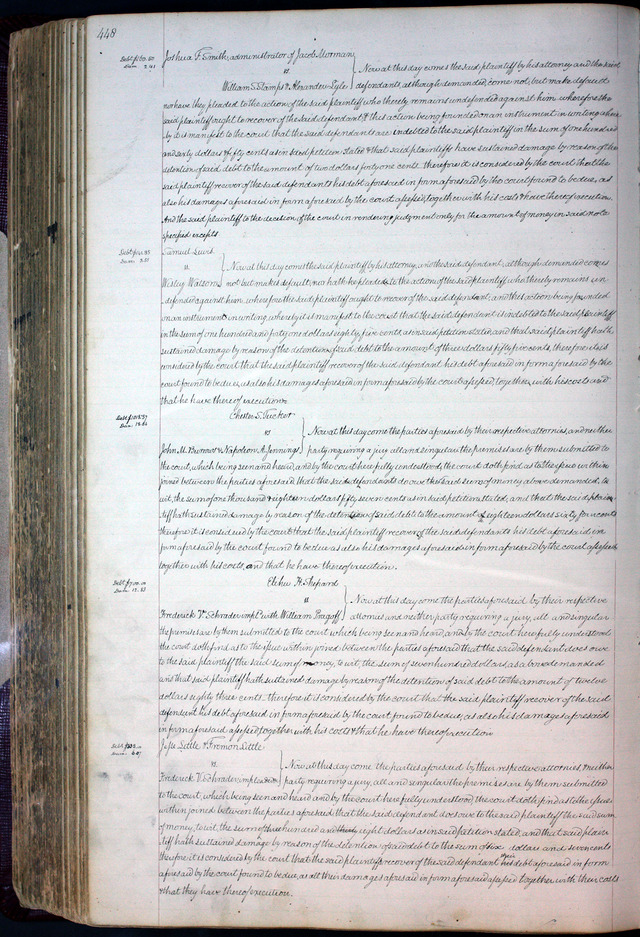 448
Debt $160.50
Dam 2.41
Joshua F. Smith, administrator of Jacob Morman
vs
William S. Stamps & Alexander Lyle
Now at this day comes the said plaintiff by his attorney and the said
defendants, although demanded, come not, but make default
nor have they pleaded to the action of the said plaintiff who thereby remains undefended against him wherefore the
said plaintiff ought to recover of the said defendants, & this action being founded on an instrument in writing where
by it is manifest to the court that the said defendants are indebted to the said plaintiff in the sum of one hundred
and sixty dollars & fifty cents as in said petition stated & that said plaintiffs have sustained damage by reason of the
detention of said debt to the amount of two dollars forty one cents. therefore it is considered by the court that the
said plaintiff recover of the said defendants his debt aforesaid in form aforesaid by the court found to be due, as
also his damages aforesaid in form aforesaid by the court assessed, together with his costs & have thereof execution.
And the said plaintiff to the decision of the court in rendering judgment only for the amount of money in said note
specified excepts.
Samuel
vs
Wesley Watson
Now at this day comes the said plaintiff by his attorney, and the said defendant, although demanded comes
not but makes default, nor hath he pleaded to the action of the said plaintiff who thereby remains un
defended against him, wherefore the said plaintiff ought to recover of the said defendant, and this action being founded
on an instrument in writing whereby it is manifest to the court that the said defendant is indebted to the said plaintiff
in the sum of one hundred and forty one dollars eighty five cents, as in said petition stated, and that said plaintiff hath
sustained damage by reason of the detention of said debt to the amount of three dollars fifty five cents, therefore it is
considered by the court that the said plaintiff recover of the said defendant his debt aforesaid in form aforesaid by the
court found to be due, as also his damages aforesaid in form aforesaid by the court assessed, together with his costs and
that he have thereof execution.
Chester S. Tucker
vs
John M. Burrows & Napoleon A. Jennings
Now at this day come the parties aforesaid by their respective attornies, and neither
party requiring a jury all and singular the premises are by them submitted to
the court, which being seen and heard, and by the court here fully understood, the court doth find as to the issue within
joined between the parties aforesaid that the said defendants do owe the said sum of money above demanded, to
wit, the sum of one thousand & eighteen dollars fifty seven cents as in said petition stated, and that the said plain
tiff hath sustained damage by reason of the detention of said debt to the amount of eighteen dollars sixty four cents
therefore it is considered by the court that the said plaintiff recover of the said defendants his debt aforesaid in
form aforesaid by the court found to be due as also his damages aforesaid in form aforesaid by the court assessed
together with his costs, and that he have thereof execution.
Debt $700.00
Dam. 12.83
Elihu H. Shepard
vs
Frederick V. Schrader impl. with William
Now at this day come the parties aforesaid by their respective
attornies and neither party requiring a jury, all and singular
the premises are by them submitted to the court which being seen and heard, and by the court here fully understood
the court doth find as to the issue within joined between the parties aforesaid that the said defendant does owe
to the said plaintiff the said sum of money, to wit, the sum of seven hundred dollars as above demanded
and that said plaintiff hath sustained damage by reason of the detention of said debt to the amount of twelve
dollars eighty three cents. therefore it is considered by the court that the said plaintiff recover of the said
defendant his debt aforesaid in form aforesaid by the court found to be due, as also his damages aforesaid
in form aforesaid assessed together with his costs & that he have thereof execution.
Jesse Little & Fremon Little
vs
Frederick V. Schrader
Now at this day come the parties aforesaid by their respective attornies, & neither
party requiring a jury, all and singular the premises are by them submitted
to the court, which being seen and heard and by the court here fully understood, the court doth find as to the issue
within joined between the parties aforesaid that the said defendant does owe to the said plaintiff the said sum
of money, to wit, the sum of three hundred and thirty eight dollars as in said petition stated, and that said plain
tiff hath sustained damage by reason of the detention of said debt to the sum of six dollars and seven cents
therefore it is considered by the court that the said plaintiffs recover of the said defendant their debt aforesaid in form
aforesaid by the court found to be due, as also their damages aforesaid in form aforesaid assessed together with their costs
& that they have thereof execution.